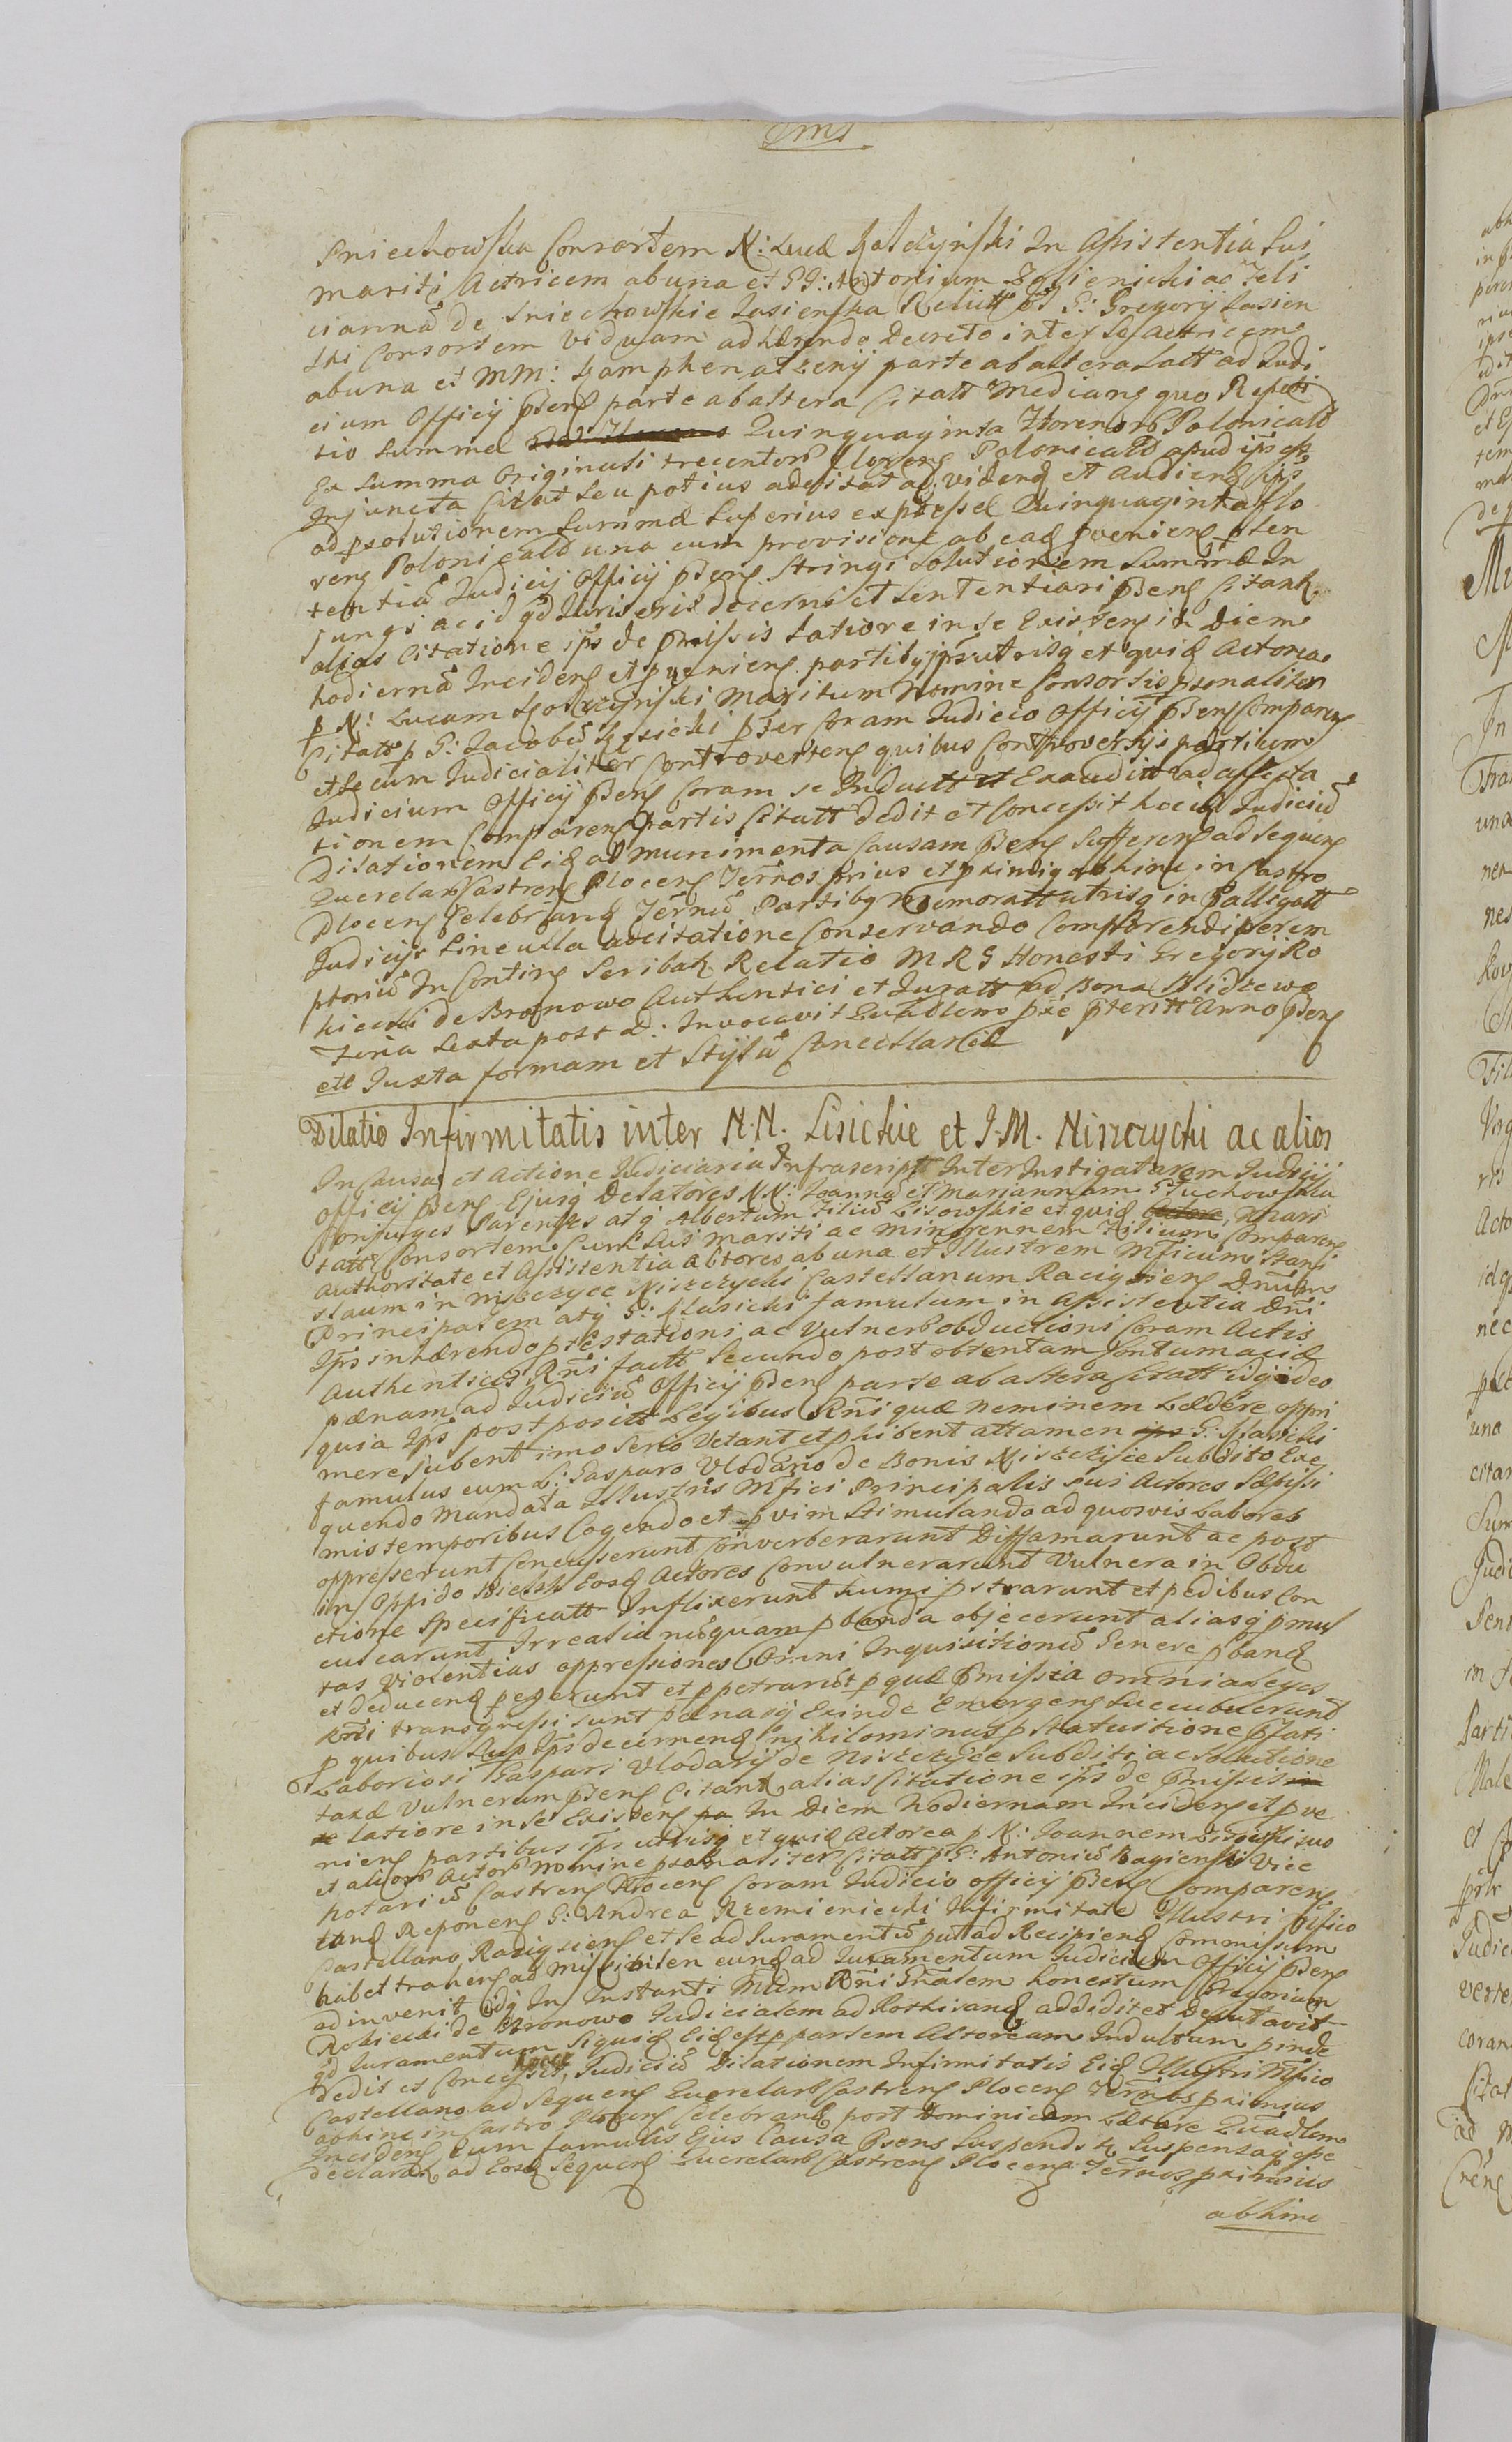 Sniechowska Consortem N: Lucæ Gołczyński In Assistentia Sui
mariti Actricem ab una et GG: Antonium Zglienicki ac Feli
cianna de Sniechowskie Jasienska Relictt et G: Gregory Jasien
ski Consortem Viduam adhærendo Decreto inter se Actricem
ab una et MM: parte ab altera Latt ad Judi
cium Officij Pñens parte ab altera Citatt Medians quo Repeti
tio Summæ Quinquaginta Florenorb Polonicalb
Ex Summa Originali trecentorb Florens Polonicalb apud ipsos
Injuncta Citat Seu potius adcitat ad vidend et audiend Se
ad psolutionem Summæ Superius expressæ Quinquaginta Flo
rens Polonicalb una cum provisione ab ead pveniens Sen
tentia Judicij Officij Pñens Stringi Solutionem Summæ In
jungi ac id qd Juris erit decerni et Sententiari Pñens Citanh
alias Citatione ips de Præmissis Latiore in se Existens in Diem
hodierna Incidens et pveniens partibq ips utrisq et quid Actorea
p N: Lucam Gołczyński Maritum Nomine Consortis psonaliter
Citatt p G: Jacobu pter Coram Judicio Officij Pñens Comparens
et Secum Judicialiter Controvertens quibus Controversijs partium
Judicium Officij Pñens Coram se Inductt et Exauditt ad affecta
tionem Comparens Partis Citatt dedit et Concessit hocid Judiciu
Dilationem Eid ad munimenta Causam Pñens Sufferens ad Sequens
Querelarb Castrens Plocens Terños prius et pximiq abhinc in Castro
Plocens Celebrand Terñu Partibq memoratt utrisq in Palligatt
Judicijs Sine ulla adcitatione Conservando Comparendi perem
ptoriu In Contins Scribatq Relatio M R G Honesti Gregory Ro
kiecki de Bronowo Authentici et Juratt ad Bona Mlidzewo
Feria Sexta post D: Invocavit Quadlem pxe pteritt Anno Pñens
ete Juxta formam et Stylu Cancellariæ

Dilatio Infirmitatis inter N.N. Lisickie et J.M. Niszczycki ac alios
In Causa et Actione Judiciaria Infrascript Inter Instigatarem Judicij
Officij Pñens Ejusq Delatores NN: Joanna et Mariannam Pluchowska
Conjuges Parentes atq Albertum Filiu Lisowskie et quid, Mari
tatt Consortem Cum Sui mariti ac Minorennem Filium Comparens
Authoritate et Assistentia Actores ab una et Illustrem Mficum Stani
slaum in Niszczyce Niszczycki Castellanum Raciązens Dñum
Principalem atq G: Klasicki famulum in Assistentia Dñi
Ips inhærendo ptestationi ac Vulnerb obductioni Coram Actis
Authenticis Rñi factt Secundo post obtentam Contumaciæ
pænam ad Judiciu Officij Pñens parte ab altera Citatt idq ideo
quia Ips postpositt Legibus Rñi quæ neminem Lædere oppri
mere jubent imo Serio Vetant et phibent attamen G: Klasicki
famulus cum L: Gasparo Vlodario de Bonis Niszczyce Subdito Exe
quendo Mandata Illustris Mfici Principalis sui Actores Sæpissi
mis temporibus Cogendo et p vim Stimulando ad quosvis Labores
oppresserunt Concusserunt Converberarunt Diffamarunt ac post
in Oppido Bielsk Eosd Actores Convulnerarunt Vulnera in Obdu
ctione Specificatt Inflixerunt humi pstrarunt et pedibus Con
culcarunt Irrealia nuquam pbanda objecerunt aliasq pmul
tas Violentias oppressiones Omni Inquisitionu Genere pband
et deducend pegerunt et ppetrarut p quæ Pmissia omnia Leges
Rñi transgressi sunt pænasq Exinde Emergens Succubuerunt
p quibus Sup Ips decernend nihilominus p Statuitione pfati
Laboriosi Gaspari Vlodarij de Niszczyce Subditi ac Solutione
taxæ Vulnerum Pñens Citant alias Citatione ips de Pmissis
Latiore in se Existens In Diem hodiernam Incidens et pve
niens partibus ips utrisq et quid Actorea p N: Joannem Lisicki suo
et aliorb Actorb nomine psonaliter Citatt p G: Antoniu Bagienski Vice
Notariu Castrens Plocens Coram Judicio officij Pñens Comparens
tand Reponens G: Andrea Rzemieniecki Infirmitate Illustri Mfico
Castellano Raciązsiens et Se ad Juramentu putt ad Recipiend Commissum
habet trahens ad missibilem eund ad Juramentum Judicium Officij Pñens
adinvenit idq In Instanti Mñum Rñi Gñalem honestum Gregorium
Rokiecki de Bronowo Judicialem ad Rothisand addidit et Deputavit
qd Juramentum Siquid Eid est p partem Actoream Indultum pinde
dedit et Concessit hocce, Judiciu Dilationem Infirmitatis Eid Illustri Mfico
Castellano ad Sequens Querelarb Castrens Plocens Termos pximius
abhinc in Castro Plocens Celebrand post Dominicam Lætare Quadlem
Incidens Cum famulis Ejus Causa Pñsens Suspendit Suspensaq esse
declarat ad Eosd Sequens Querelarb Castrens Plocens Terños pximis
abhinc